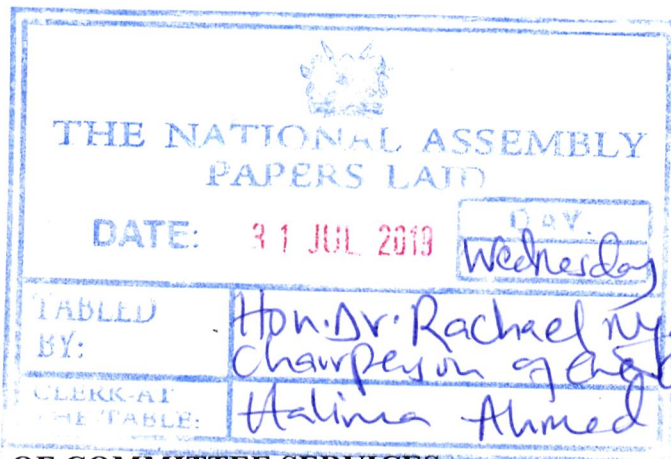 THE NATIONAL ASSEMBLY
PAPERS LAID
DATE: 31 JUL 2019
DAY.
Wednesday
TABLED BY:
Hon. Dr. Rachael
Chairperson of
CLERK-AT THE TABLE:
Halima Ahmed
OF COMMITTEE SERVICES